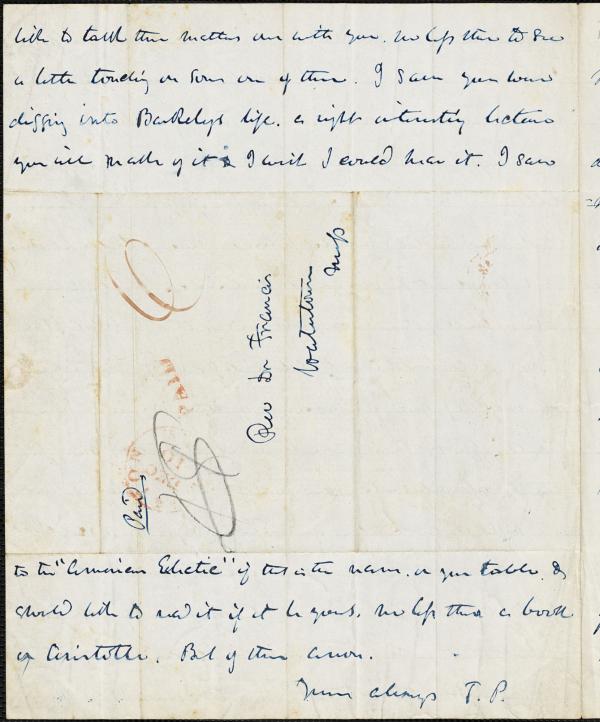 like to talk these matters over with you, no less than to see
a letter touching on some one of them. I saw you were
digging into Berkeleys life. a right interesting lecture
you will make of it & I wish I could hear it. I saw
Rev Dr Francis
Watertown
Mass
PAID
Paid
to the "American Eclectic" if that is the name, on your table. I
should like to read it if it be yours, no less than a book
of Aristotle. But of these anon.
Yours always T. P.